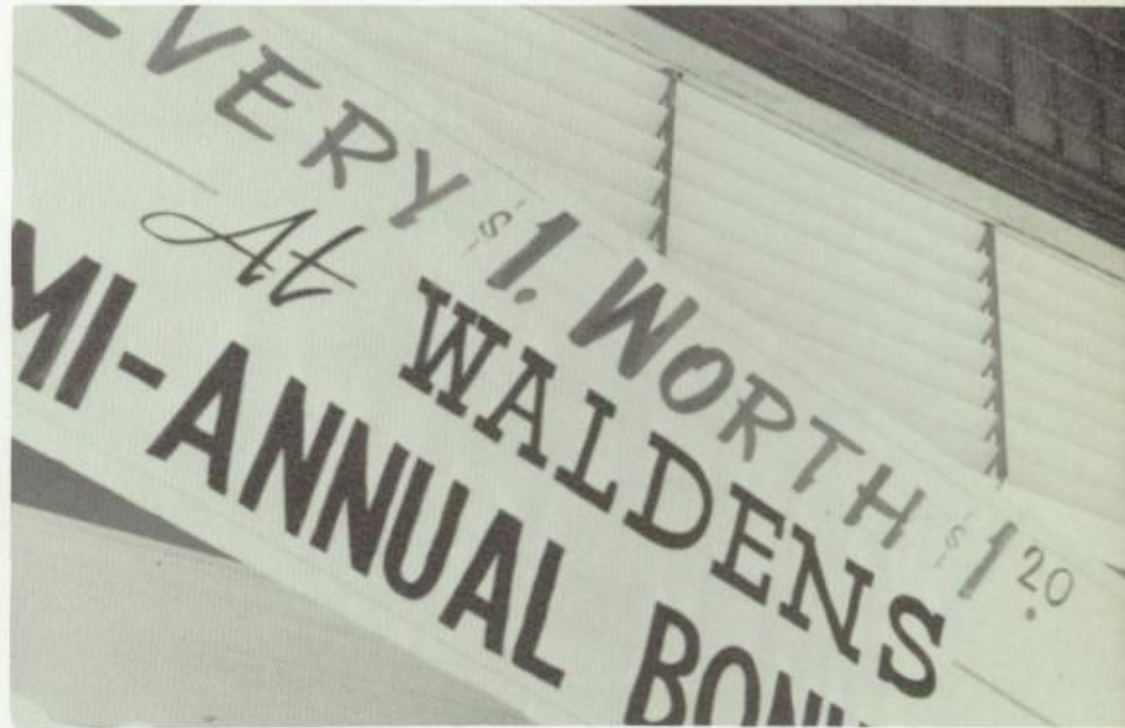 -VERY $1. WORTH $1.20
At WALDENS
MI-ANNUAL BONU